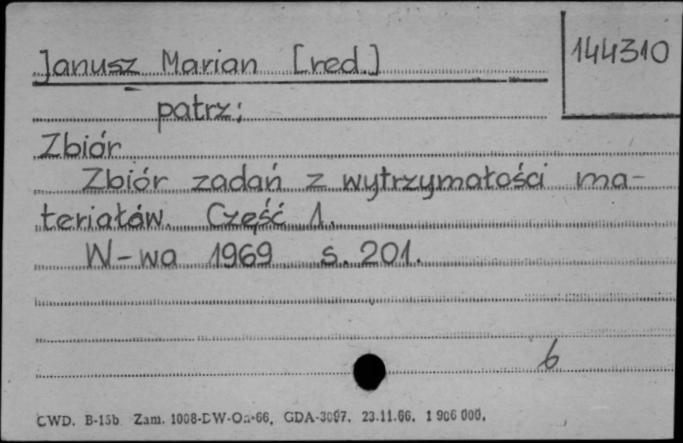 Janusz Marian [red.]
144310
patrz:
Zbiór
Zbiór zadań z wytrzymałości ma-
teriałów. Część 1.
W-wa 1969 s. 201.
6
CWD. B-15b Zam. 1008-DW-Oa-66, GDA-3097. 23.11.66. 1 906 000.